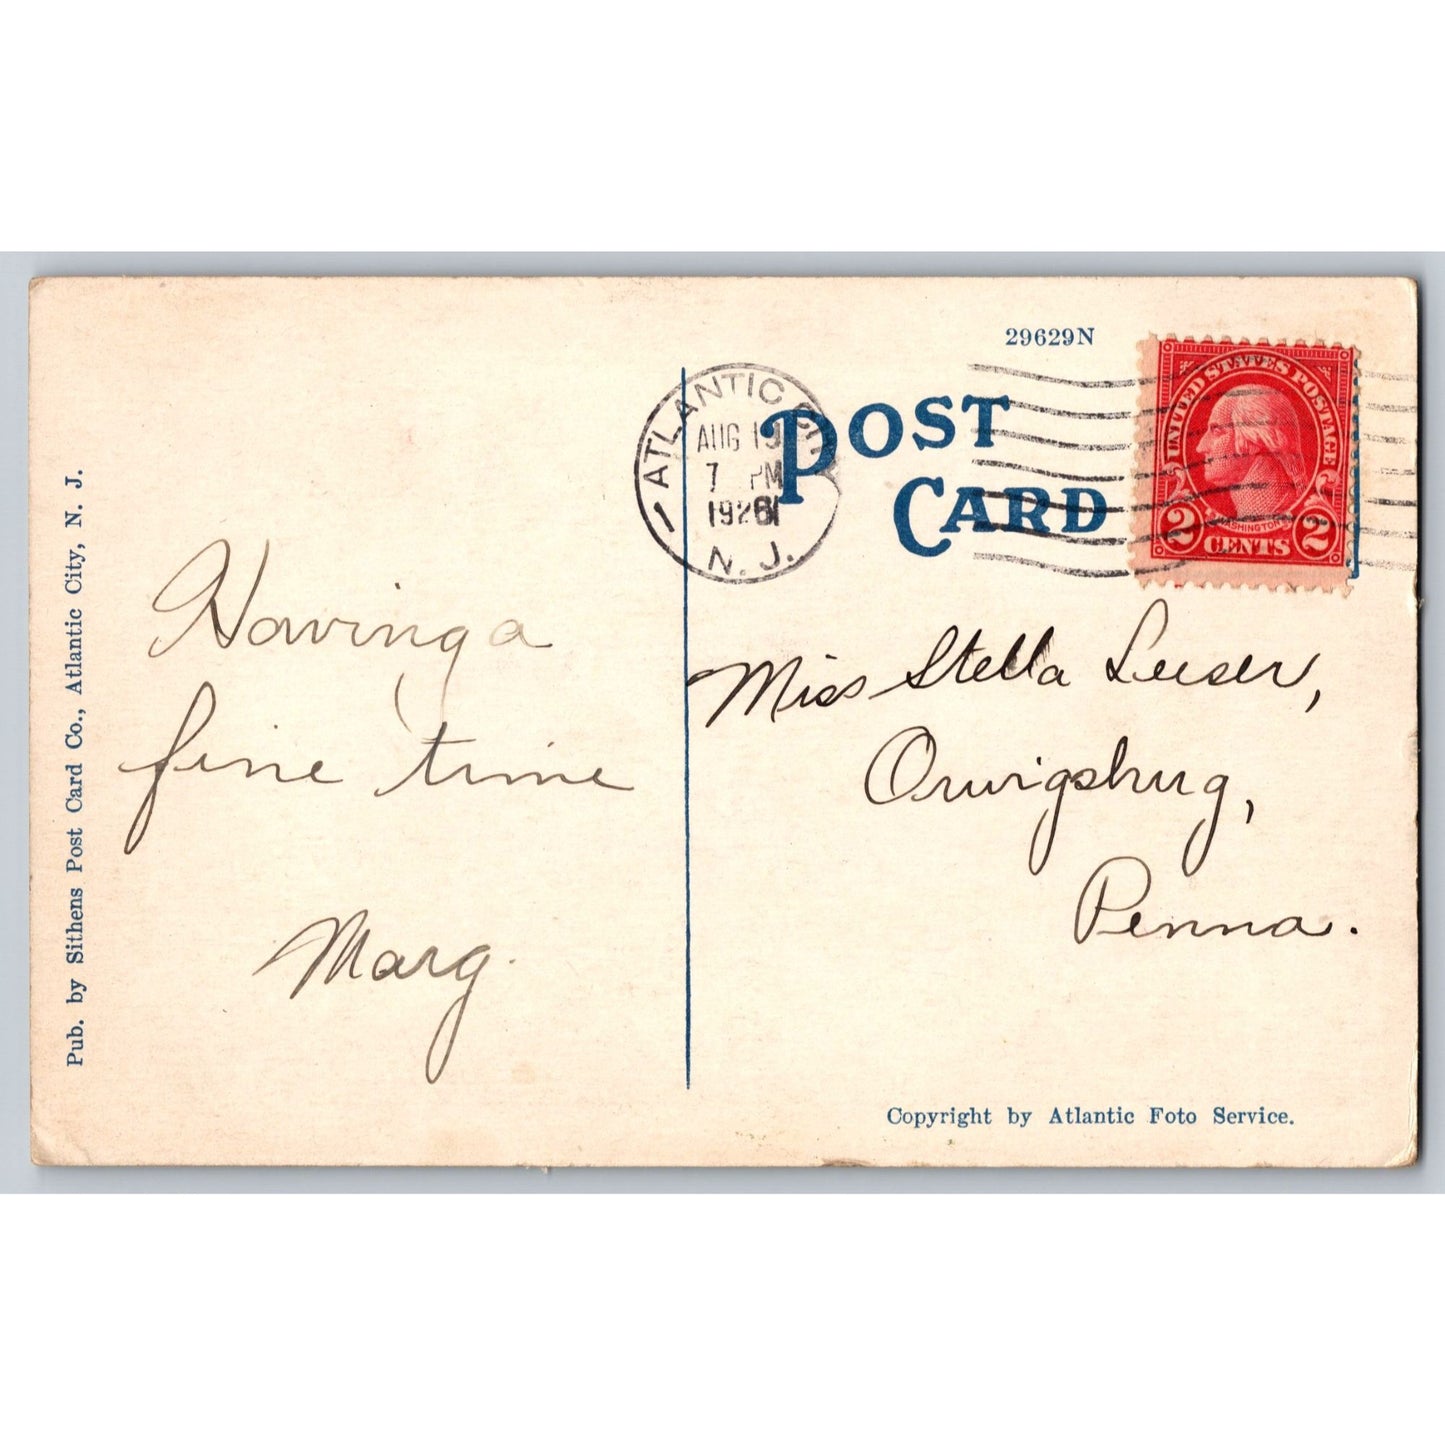 29629N
POST
CARD
ATLANTIC CITY
AUG 19
7 PM
1926
N. J.
UNITED STATES POSTAGE
WASHINGTON
2 CENTS 2
Having a
fine time
Marg.
Miss Stella Leeser,
Orwigsburg,
Penna.
Pub. by Sithens Post Card Co., Atlantic City, N. J.
Copyright by Atlantic Foto Service.